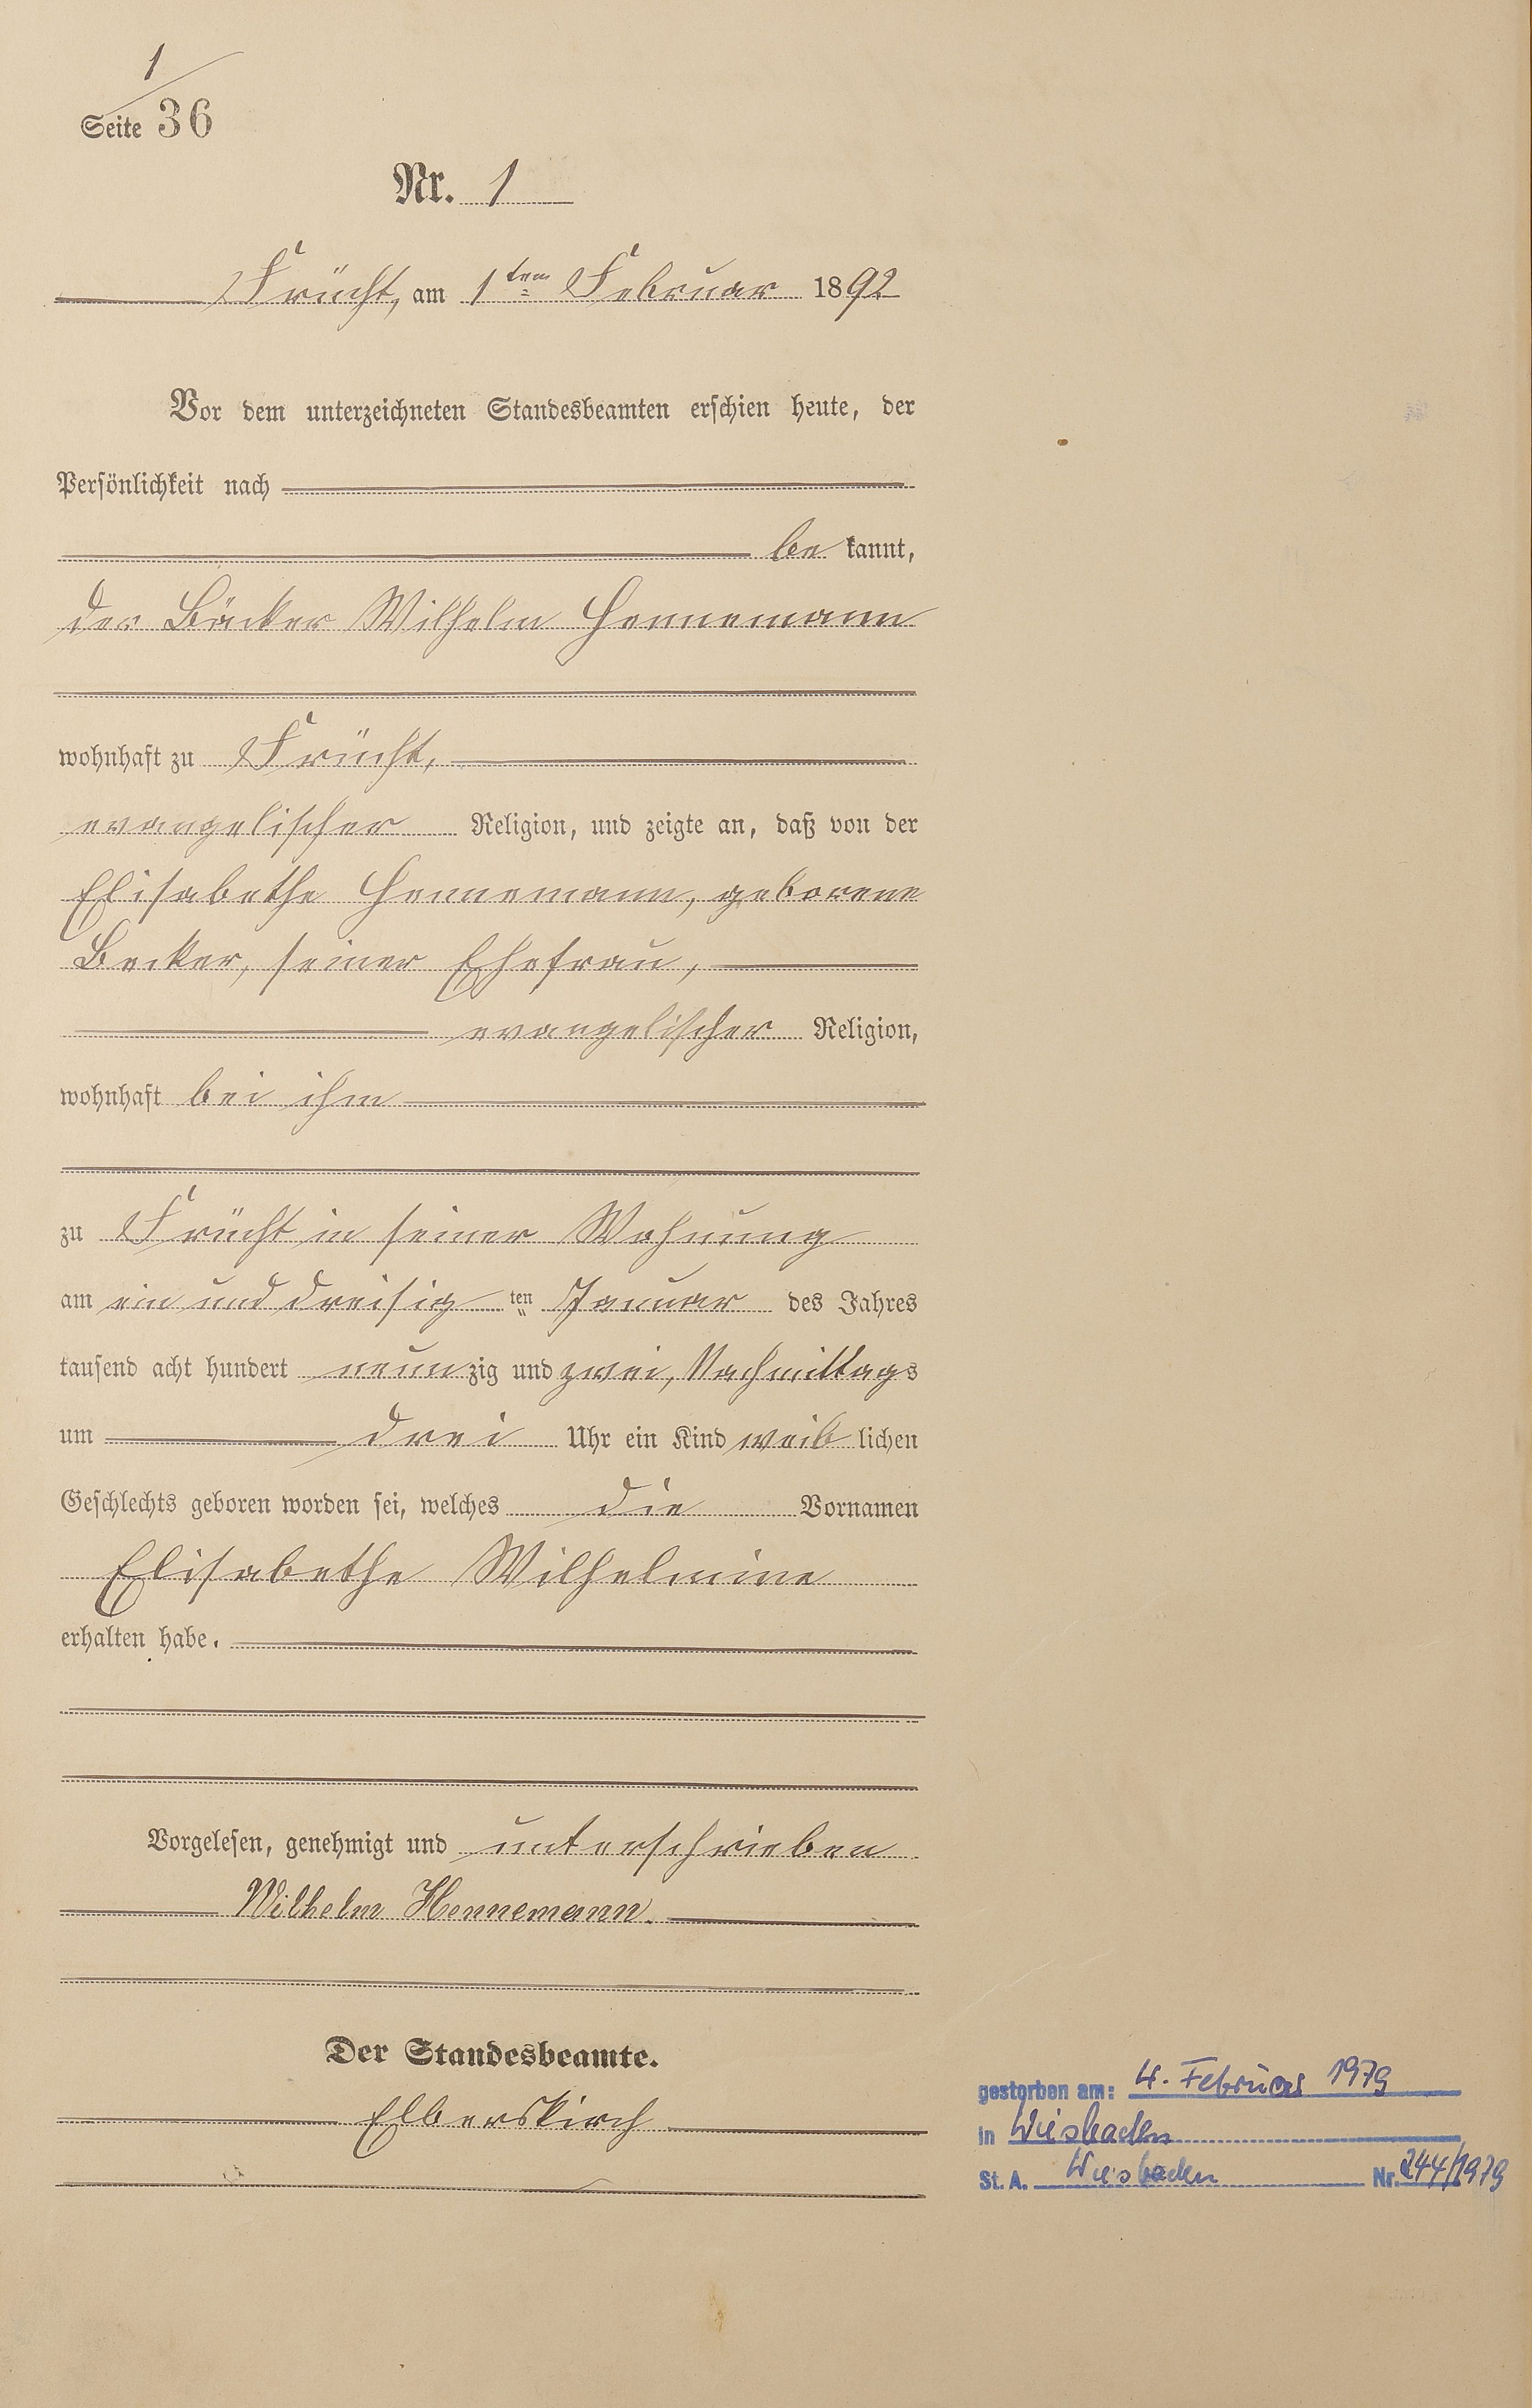 1
Seite 36
Nr. 1
Frücht, am 1ten Februar 1892
Vor dem unterzeichneten Standesbeamten erschien heute, der
Persönlichkeit nach
be kannt,
der Bäcker Wilhelm Hennemann
wohnhaft zu Frücht,
evangelischer Religion, und zeigte an, daß von der
Elisabethe Hennemann, geborene
Becker, seiner Ehefrau,
evangelischer Religion,
wohnhaft bei ihm
zu Frücht in seiner Wohnung
am ein und dreisig ten Januar des Jahres
tausend acht hundert neunzig und zwei, Nachmittags
um drei Uhr ein Kind weib lichen
Geschlechts geboren worden sei, welches die Vornamen
Elisabethe Wilhelmine
erhalten habe.
Vorgelesen, genehmigt und unterschrieben
Wilhelm Hennemann.
Der Standesbeamte.
Elberskirch
gestorben am: 4. Februar 1979
in Wiesbaden
St. A. Wiesbaden Nr. 244/1979